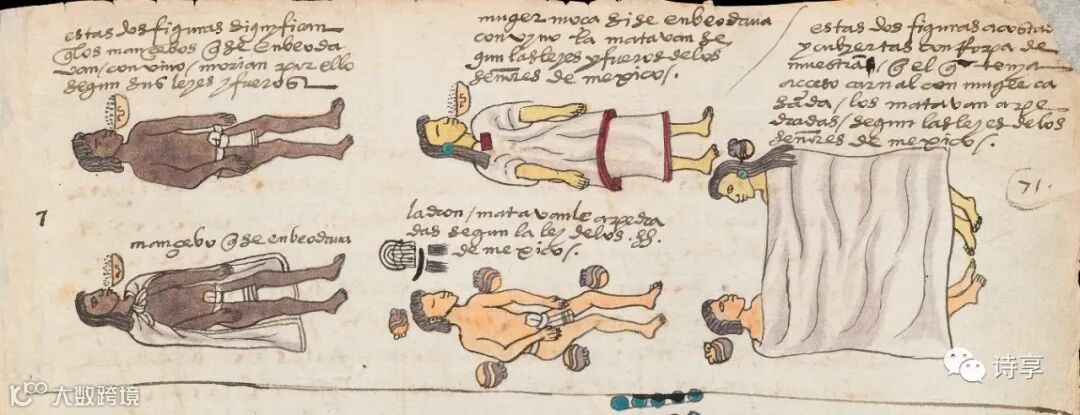 estas dos figuras significan
q̃ los mançebos q̃ se enbeoda
van / con vino / morian por ello
segun sus leyes y fueros
muger moça si se enbeodava
con vino la matavan se
gun las leyes y fueros de los
señores de mexico /.
estas dos figuras acostadas
y cubiertas con Ropa de
muestra q̃ el q̃ tenja
acceso carnal con muger ca
sada / los matavan a pe
dradas / segun las leyes de los
señores de mexico /.
71.
7
mançebo q̃ se enbeodava
ladron / matavanle a pedra
das segun la ley de los SS.
de mexico /.
大数跨境
诗享